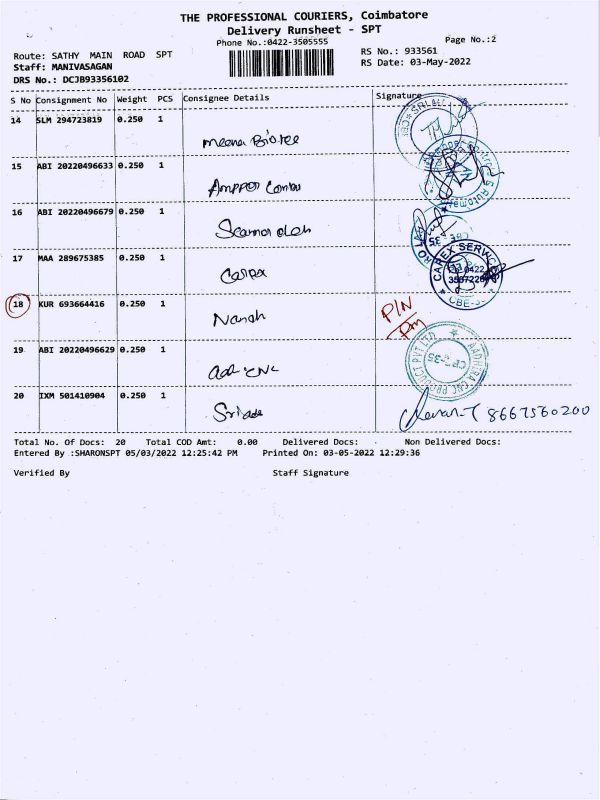 THE PROFESSIONAL COURIERS, Coimbatore
Delivery Runsheet - SPT
Phone No.:0422-3505555
Page No.:2
Route: SATHY MAIN ROAD SPT
RS No.: 933561
Staff: MANIVASAGAN
RS Date: 03-May-2022
DRS No.: DCJB93356102
S No Consignment No Weight PCS Consignee Details Signature
14 SLM 294723819 0.250 1
Meena
15 ABI 20220496633 0.250 1
16 ABI 20220496679 0.250 1
17 MAA 289675385 0.250 1
CAREX SERVICE
0422
CBE-35
18 KUR 693664416 0.250 1
P/N
19 ABI 20220496629 0.250 1
AADHIRA CNC PRODUCT PVT LTD
20 IXM 501410904 0.250 1
8667560200
Total No. Of Docs: 20 Total COD Amt: 0.00 Delivered Docs: Non Delivered Docs:
Entered By :SHARONSPT 05/03/2022 12:25:42 PM Printed On: 03-05-2022 12:29:36
Verified By Staff Signature